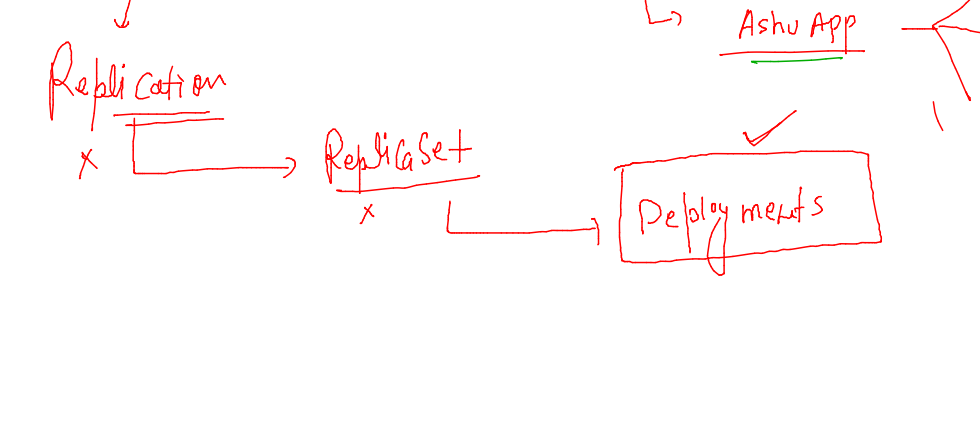 Ashu App
Replication
x
ReplicaSet
x
Deployments